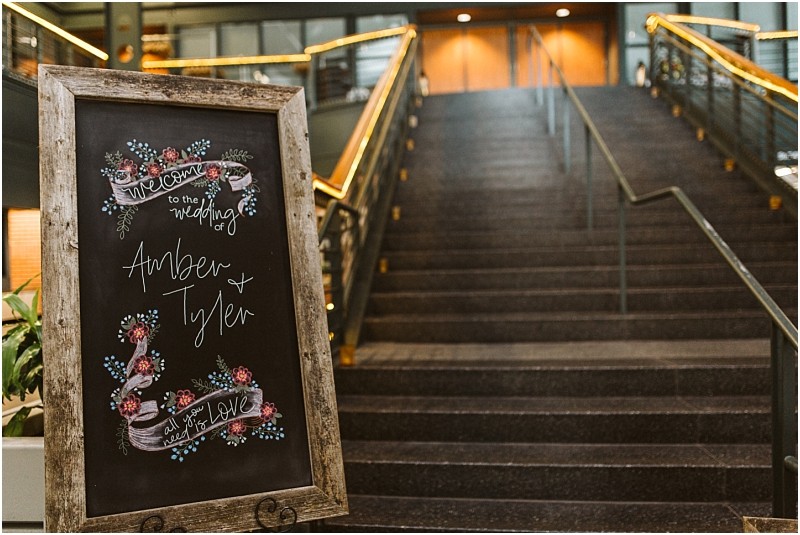 welcome
to the
wedding
of
Amber +
Tyler
all you
need is LOVE